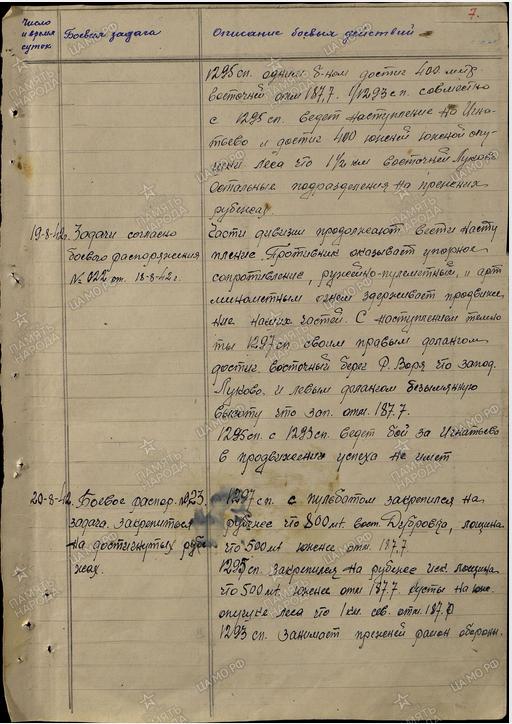 7.
Число
и время
суток
Боевая задача
Описание боевых действий
1295 сп. одним б-ном достиг 400 мтр
восточней отм 187,7. 1/1293 сп. совместно
с 1295 сп. ведет наступление на Игна-
тьево и достиг 400 южней южной опу-
шки леса что 1½ км восточней Луково
Остальные подразделения на прежних
рубежах.
19-8-42г.
Задачи согласно
боевого распоряжения
№ 022 от 18-8-42 г.
Части дивизии продолжают вести насту
пление. Противник оказывает упорное
сопротивление ружейно-пулеметный, и арт
минометным огнем задерживает продвиже-
ние наших частей. С наступлением темно
ты 1297 сп своим правым флангом
достиг восточный берег р. Воря что запад.
Луково и левым флангом безымянную
высоту что зап. отм. 187.7.
1295 сп. с 1293 сп. ведет бой за Игнатьево
в продвижении успеха не имет
20-8-42.
Боевое распор. №23.
задача. закрепиться
на достигнутых рубе
жах.
1297 сп. с пульбатом закрепился на
рубеже что 800 мт. вост. Дубровка, лощина
что 500 мт южнее отм. 187.7.
1295 сп. закрепился на рубеже иск. лощина
что 500 мт. южнее отм. 187.7. кусты на юж.
опушке леса что 1 км. сев. отм. 187.7
1293 сп. занимает прежней район обороны.
ПАМЯТЬ НАРОДА
ЦАМО.РФ